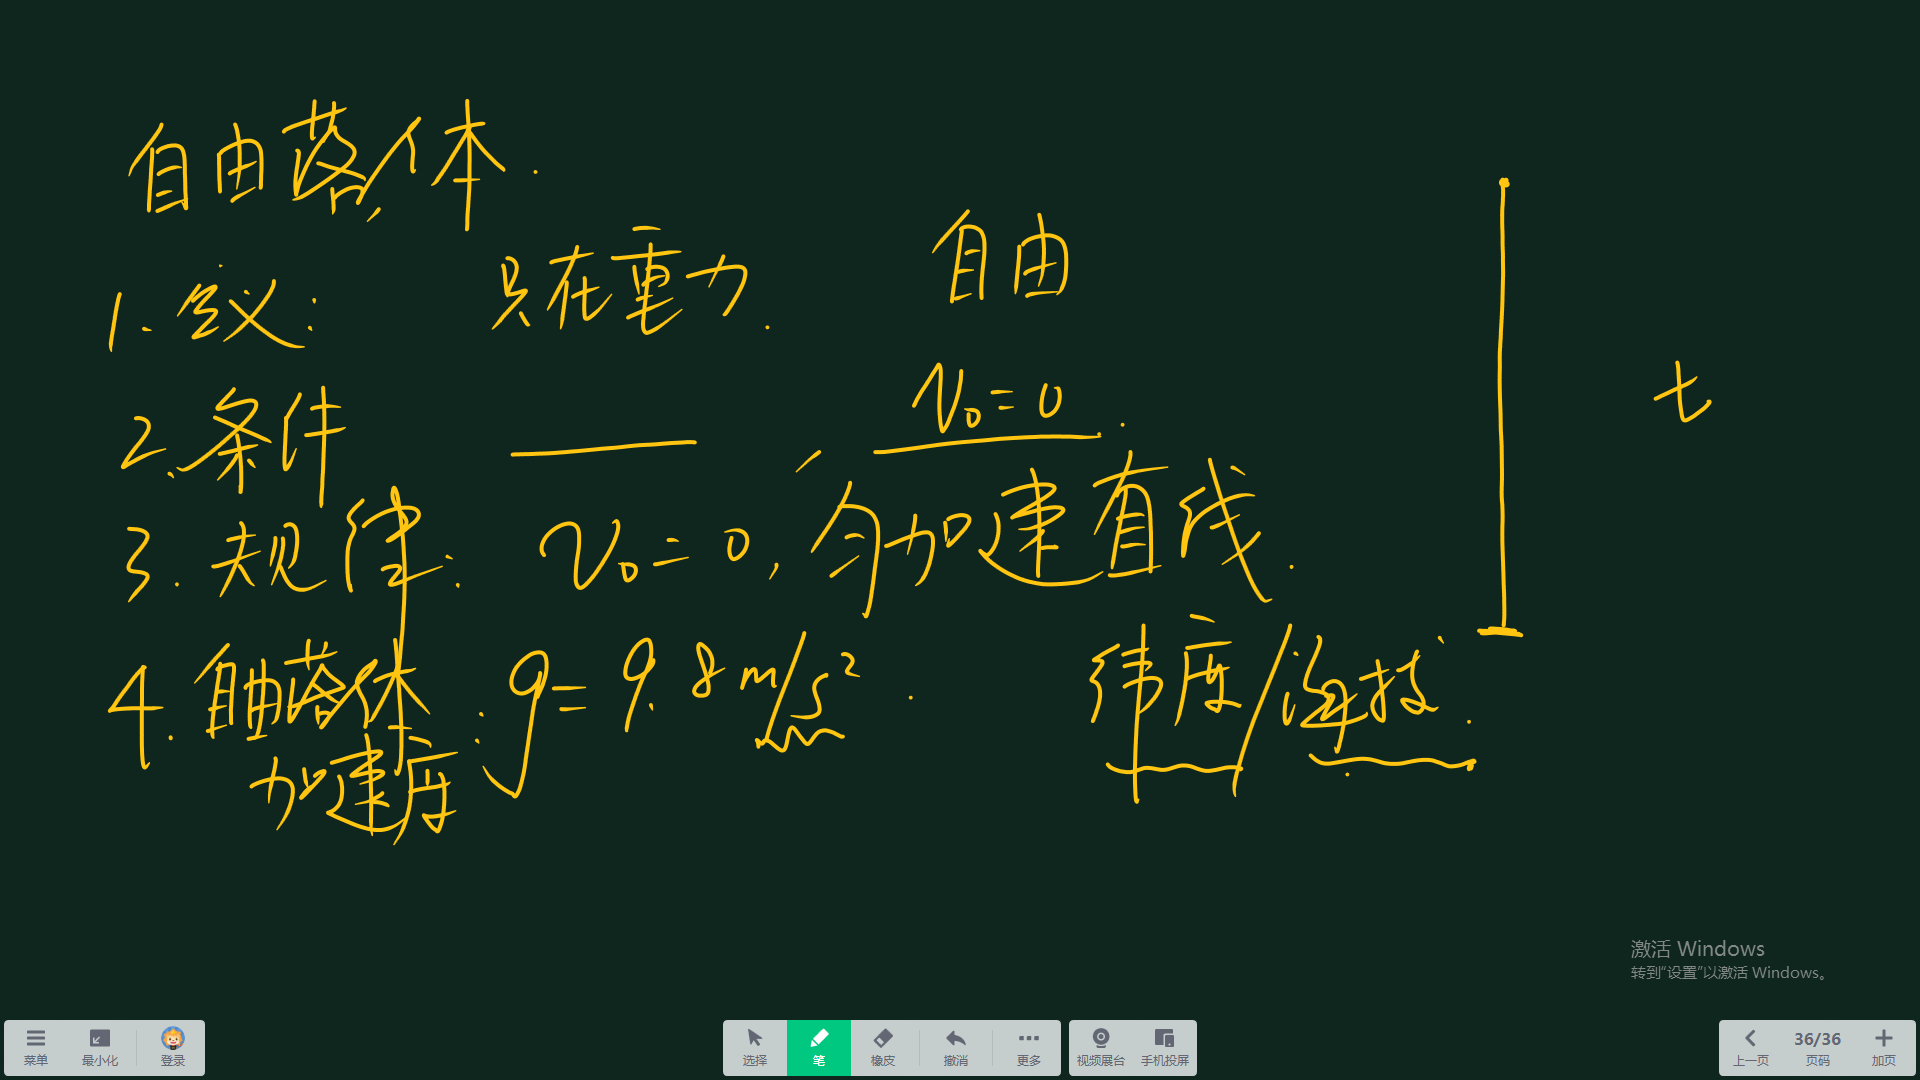 自由落体.
1. 定义: 只在重力. 自由
2. 条件 ——, v₀=0.
t
3. 规律: v₀=0, 匀加速直线.
4. 自由落体加速度: g=9.8m/s². 纬度/海拔.
激活 Windows
转到“设置”以激活 Windows。
菜单 最小化 登录 选择 笔 橡皮 撤消 更多 视频展台 手机投屏 上一页 36/36 页码 加页